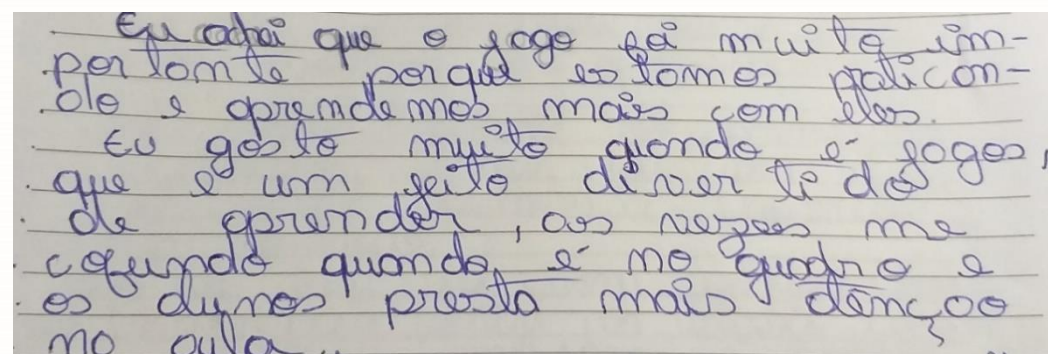 Eu achei que o jogo foi muito im-
portante porque estamos pratican-
do e aprendemos mais com eles.
Eu gosto muito quando é jogos,
que é um jeito divertido
de aprender, as vezes me
cofundo quando é no quadro e
os alunos presta mais atenção
no aula.